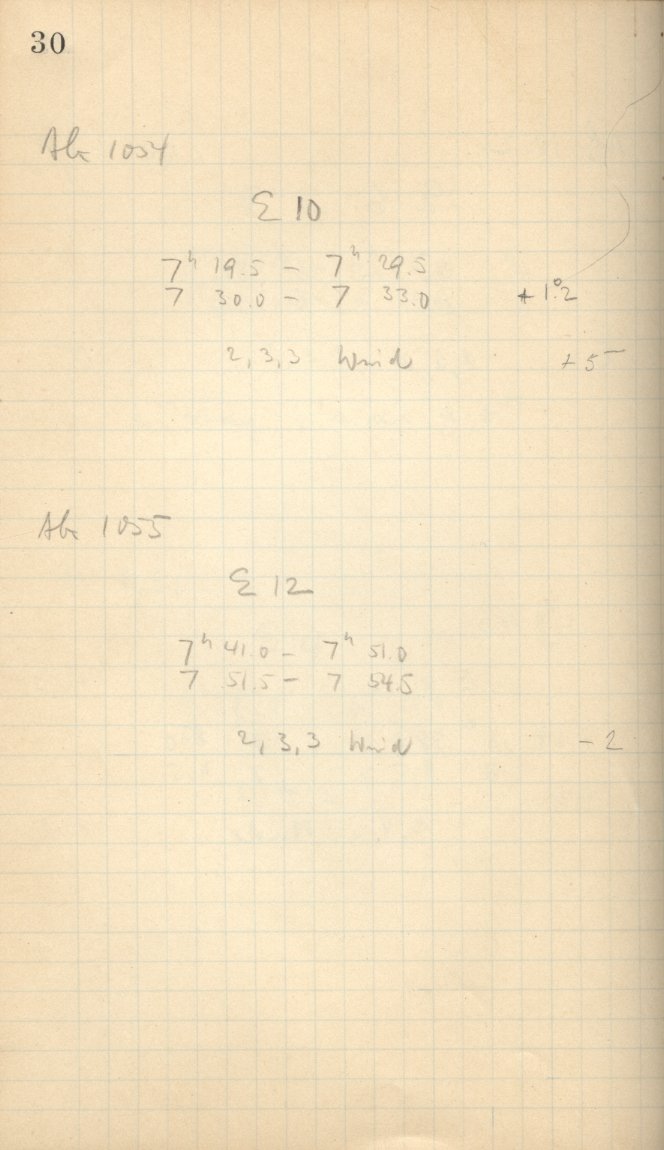 30
Ab 1054
Σ 10
7ʰ 19.5 – 7ʰ 29.5
7 30.0 – 7 33.0 + 1°.2
2, 3, 3 Wind + 5
Ab 1055
Σ 12
7ʰ 41.0 – 7ʰ 51.0
7 51.5 – 7 54.5
2, 3, 3 Wind – 2